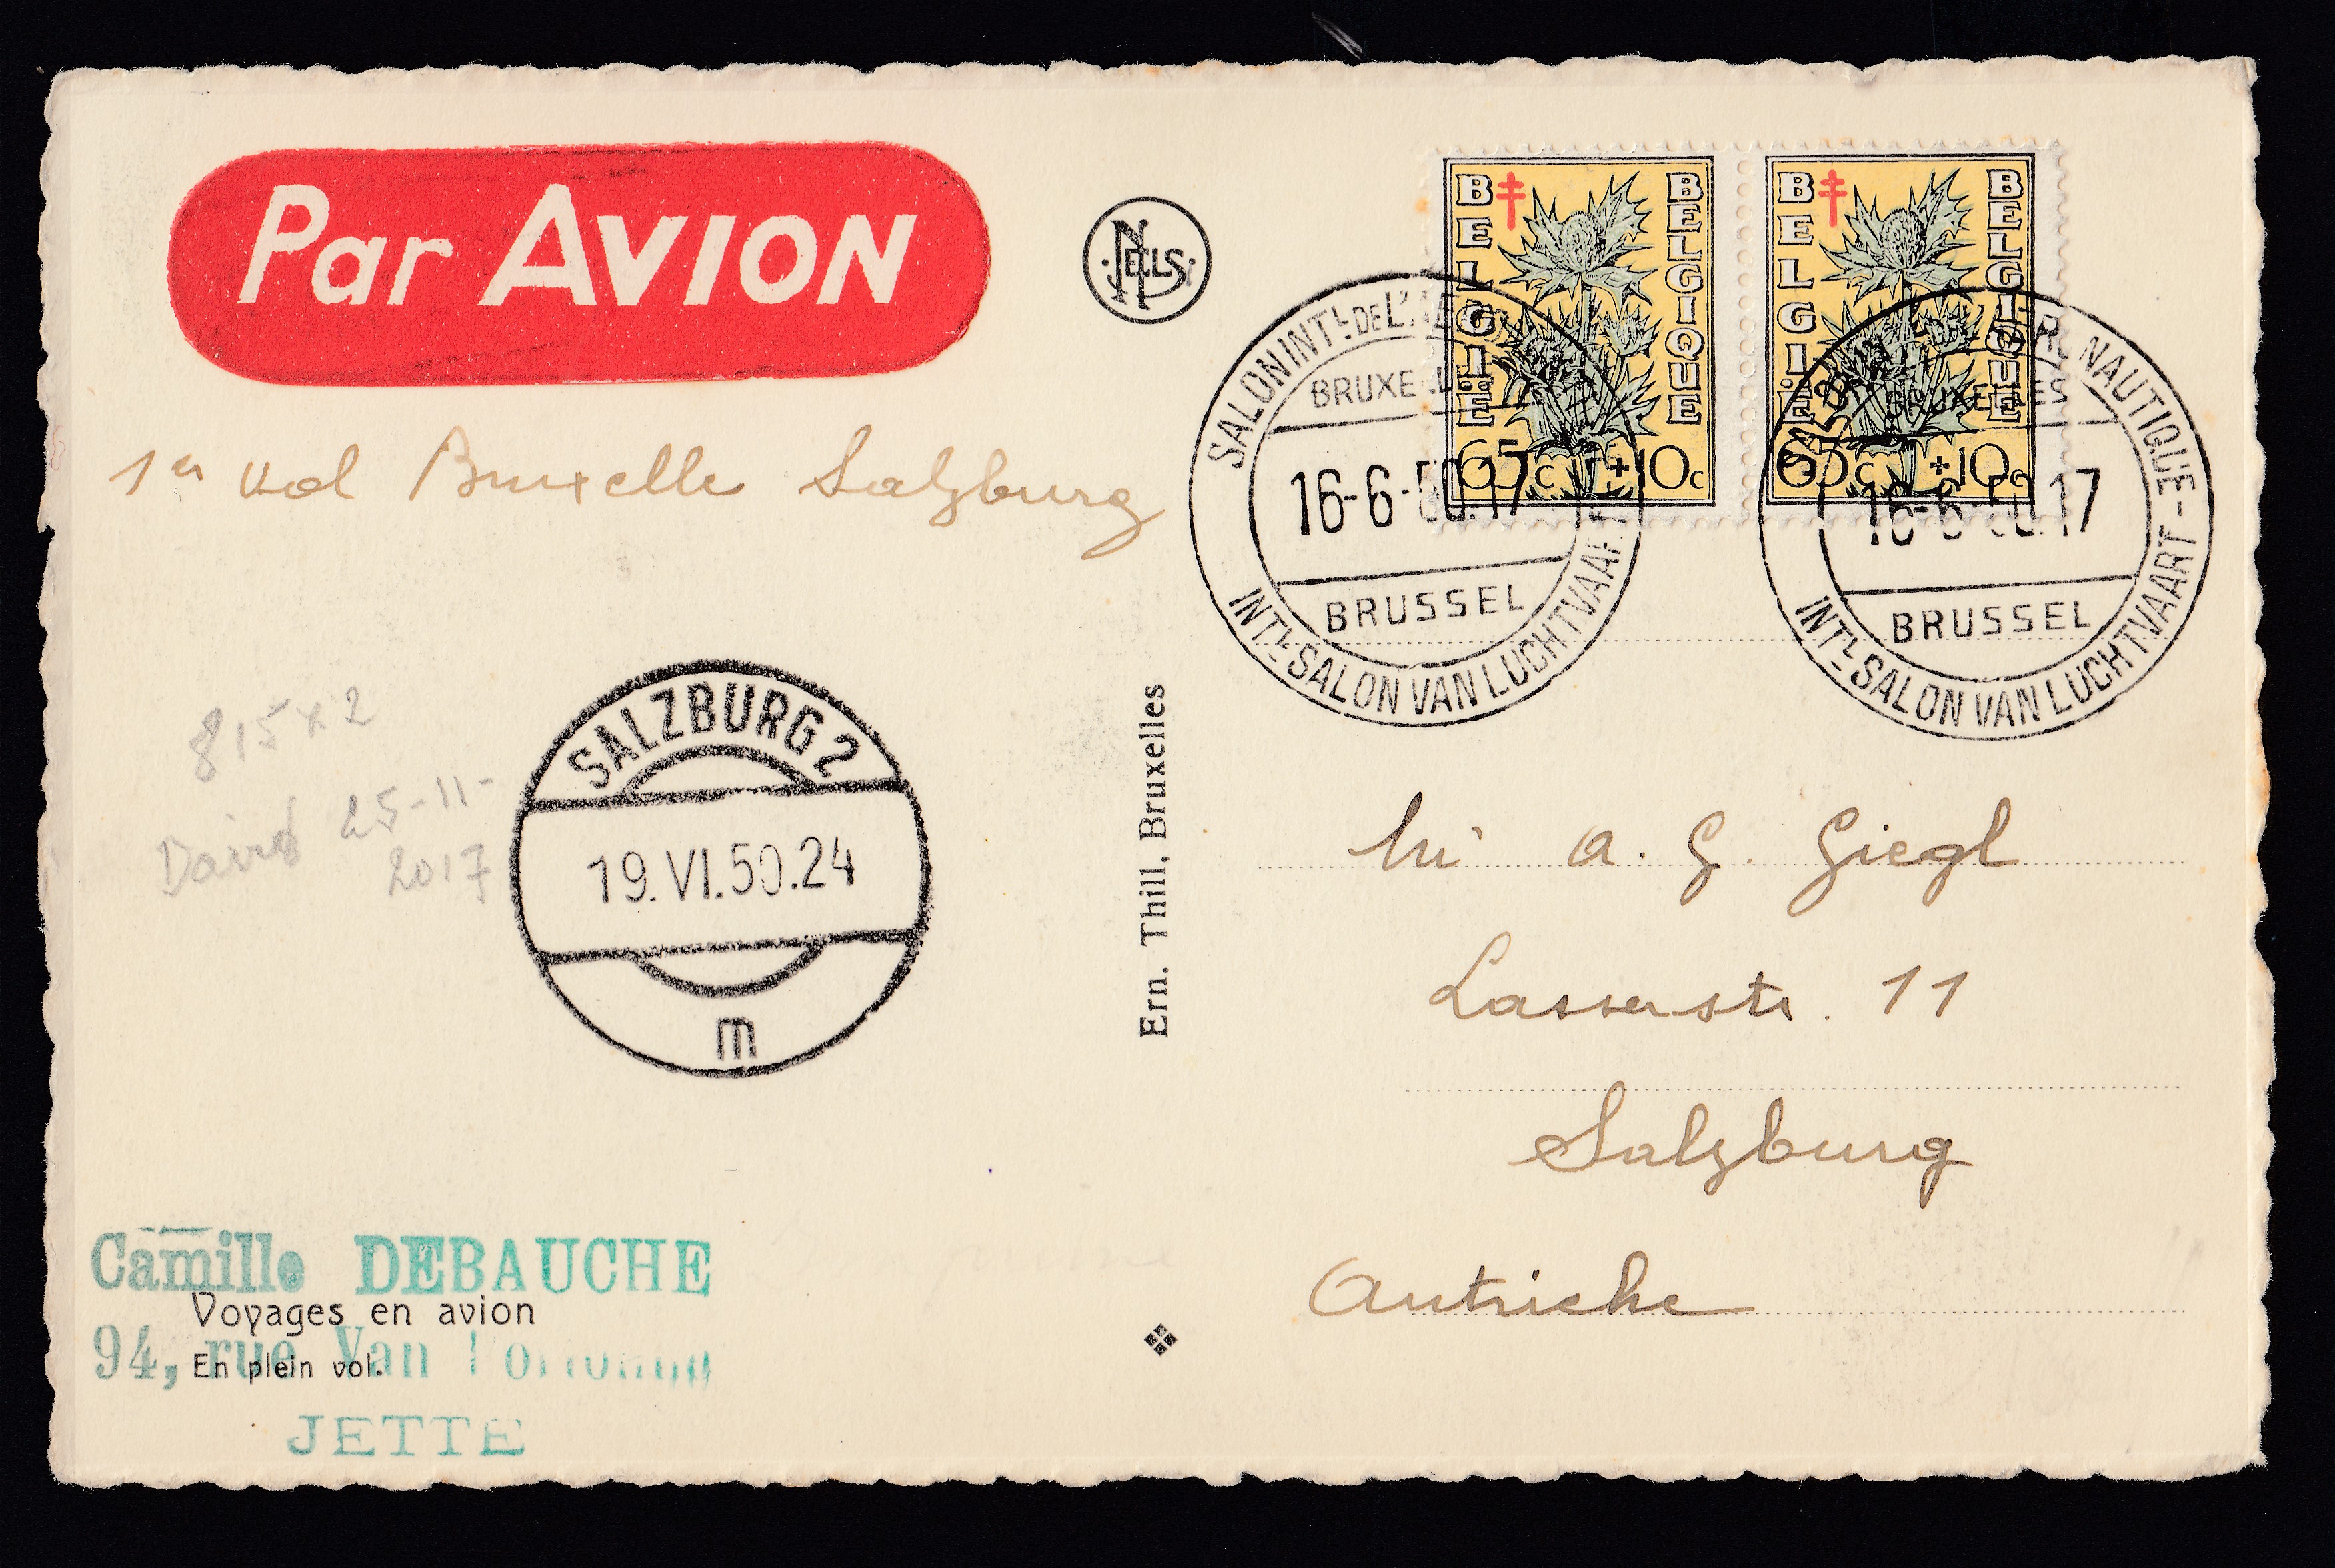 Par AVION
NELS
BELGIË BELGIQUE
65c +10c
BELGIË BELGIQUE
65c +10c
SALON INTL DE L'AE
BRUXELLES
16-6-50.17
BRUSSEL
INTL SALON VAN LUCHTVAART
SAL RONAUTIQUE -
BRUXELLES
16-6-50.17
BRUSSEL
INTL SALON VAN LUCHTVAART
1er vol Bruxelle Salzburg
815 x 2
David 25-11-
2017
SALZBURG 2
19.VI.50.24
m
Ern. Thill, Bruxelles
a. G. Giegl
Lasserstr. 11
Salzburg
Autriche
Camille DEBAUCHE
Voyages en avion
94, rue Van
En plein vol.
JETTE